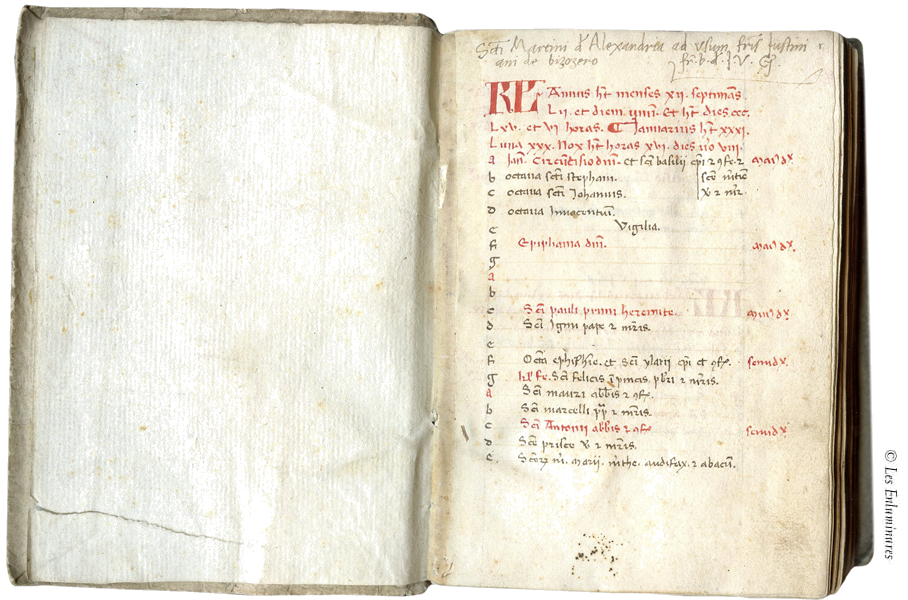 Scti Martini d Alexandria ad usum fris Justini
ani de bizozero
KL Annus ht menses xii. septimas
Lii. et diem unu. Et ht dies ccc.
Lxv. et vi horas. Januarius ht xxxi.
Luna xxx. Nox ht horas xvi. dies uo viii.
a Jan. Circucisio dni. et sci basilij epi z ofe. z maius dx.
b octava scti stephani. sce
c octava scti Johannis. v z mr.
d octava Innocentum.
e Vigilia.
f Epiphania dni. maius dx.
g
a
b
c Sci pauli primi heremite. maius dx.
d Sci Igini pape z mris.
e
f Octa ephiphie. et Sci ylarii epi et of. semidx.
g Sci felicis i pincis. pbri z mris.
a Sci mauri abbis z of.
b Sci marcelli pp z mris.
c Sci Antonii abbis z of semidx.
d Sce prisce v z mris.
e Scorum m. marii. mthe. audifax. z abacum.
© Les Enluminures